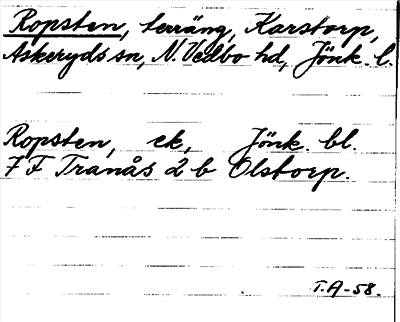 Ropsten, terräng, Karstorp,
Askeryds sn, N. Vedbo hd, Jönk. l.
Ropsten, ek, Jönk. bl.
7 F Tranås 2 b Olstorp.
T.A-58.